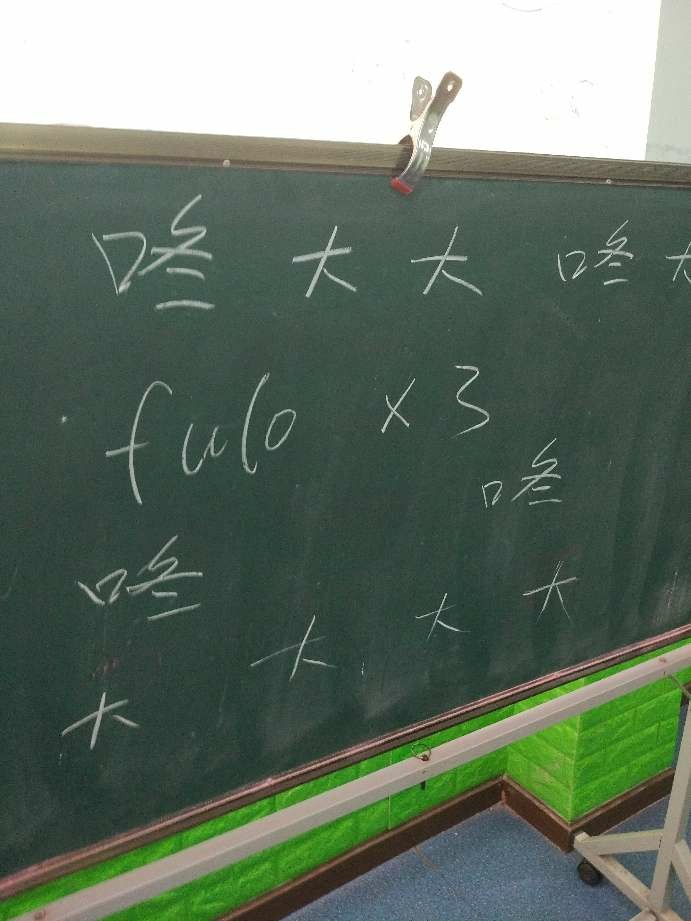 咚 大 大 咚 大
fulo ×3
咚
咚
大 大 大
大